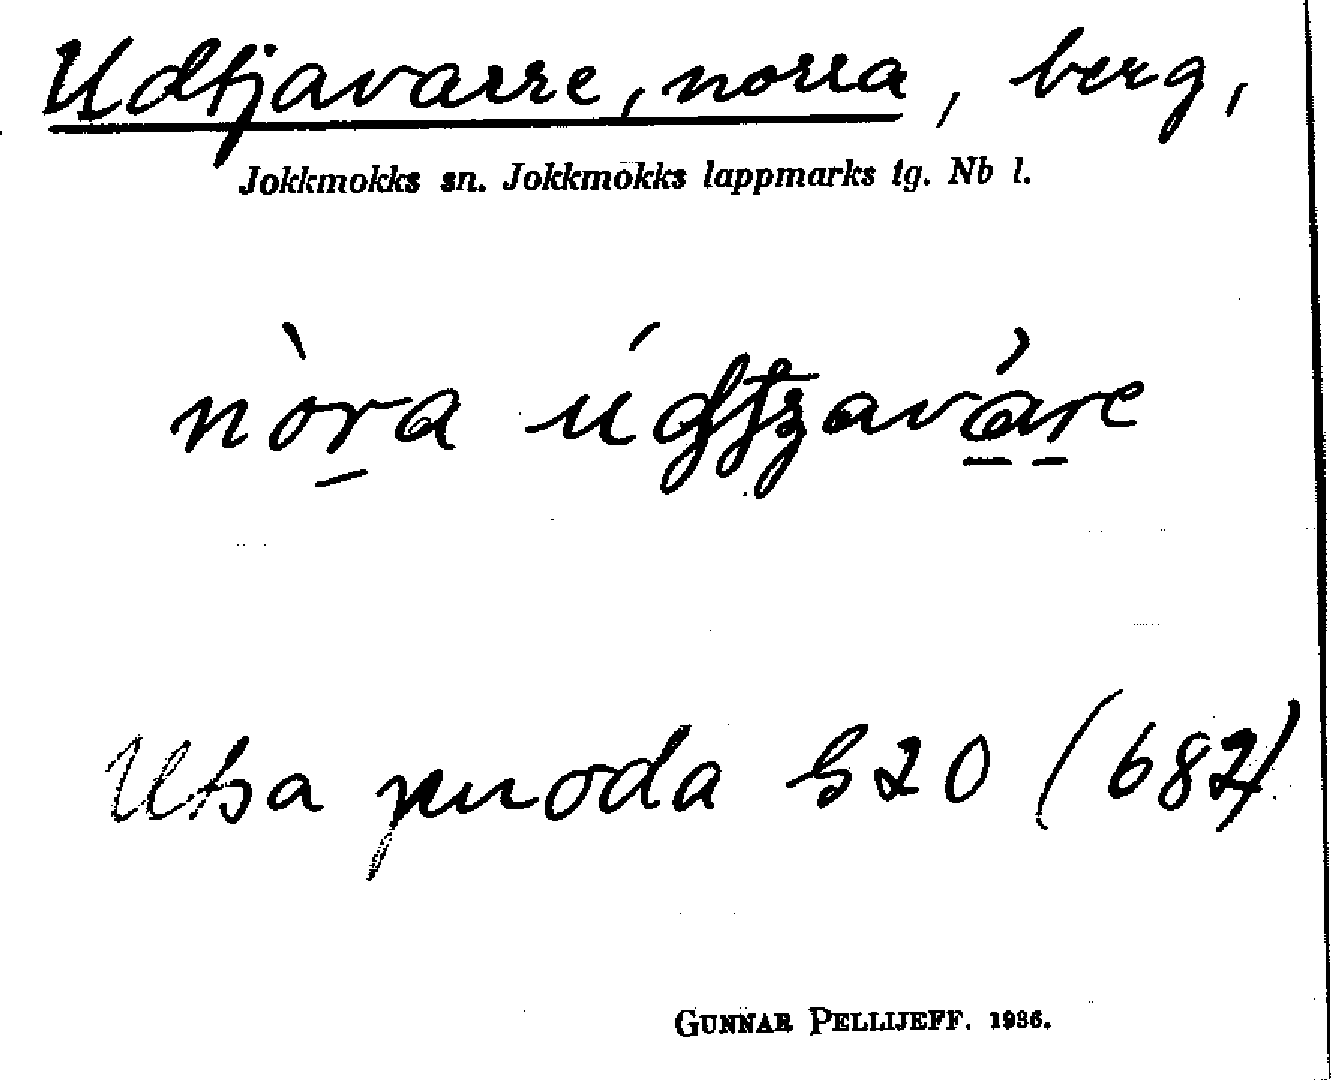 Udtjavarre, norra, berg,
Jokkmokks sn. Jokkmokks lappmarks tg. Nb l.
nòra
Utsa 520 (682)
GUNNAR PELLIJEFF. 1936.